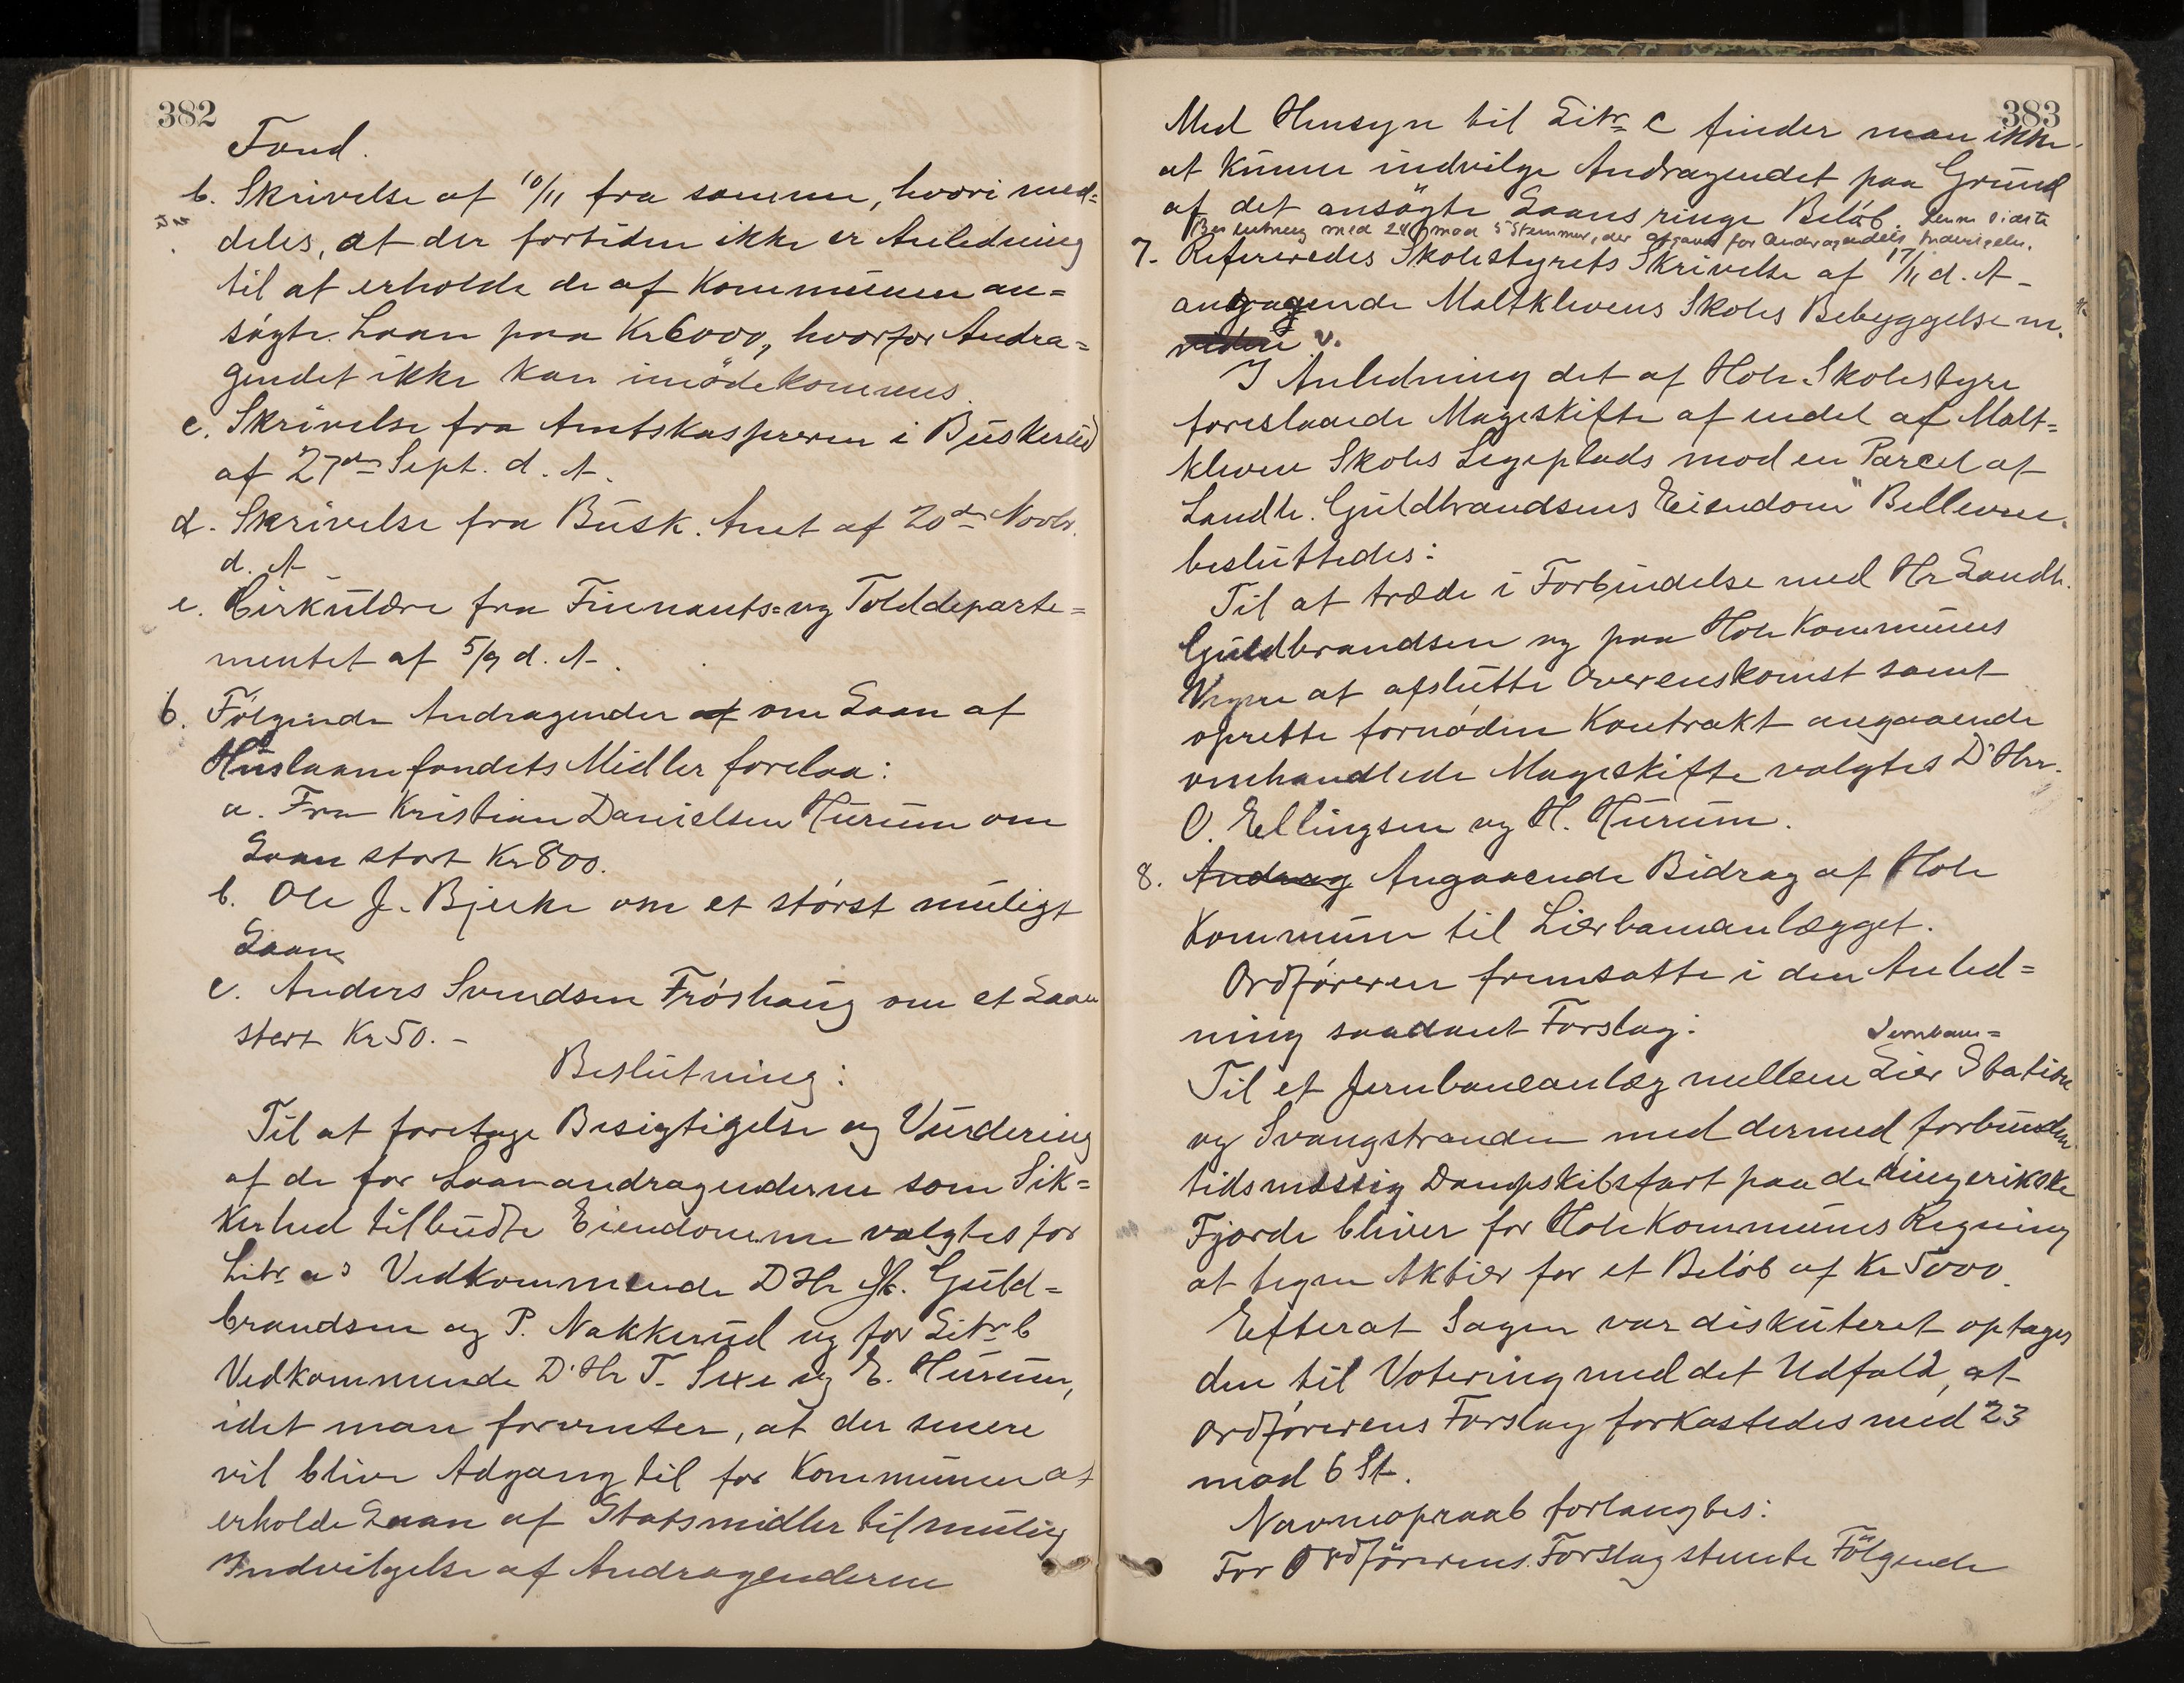 382
Fond.
b. Skrivelse af 10/11 fra samme, hvori med=
deles, at der fortiden ikke er Anledning
til at erholde de af Kommunen an=
søgte Laan paa Kr 6000, hvorfor Andra=
gendet ikke kan imødekommes.
c. Skrivelse fra Amtskassereren i Buskerud
af 27de Sept. d. A.
d. Skrivelse fra Busk. Amt af 20de Novbr.
d. A
e. Cirkulære fra Finants= og Tolddeparte=
mentet af 5/9 d. A.
6. Følgende Andragender af om Laan af
Huslaanefondets Midler forelaa:
a. Fra Kristian Danielsen Hurum om
Laan stort Kr 800.
b. Ole J. Bjerke om et størst muligt
Laan
c. Anders Svendsen Frøshaug om et Laan
stort Kr 50. -
Beslutning:
Til at foretage Besigtigelse og Vurdering
af de for Laaneandragenderne som Sik=
kerhed tilbudte Eiendomme valgtes for
Litr. a's Vedkommende D'Hr Guld=
brandsen og P. Nakkerud og for Litr. b
Vedkommende D'Hr T. Sexe og E. Hurum,
idet man forventer, at der senere
vil blive Adgang til for Kommunen at
erholde Laan af Statsmidler til mulig
Indvilgelse af Andragenderne
383
Med Hensyn til Litr. c finder man ikke
at kunne indvilge Andragendet paa Grund
af det ansøgte Laans ringe Beløb. Denne sidste
Beslutning med 24 mod 5 Stemmer, der afgaves for Andragendets Indvilgelse.
7. Refereredes Skolestyrets Skrivelse af 17/11 d. A -
angaaende Maltklevens Skoles Bebyggelse m.
v.
I Anledning det af Hole Skolestyre
foreslaaede Mageskifte af endel af Malt=
kleven Skoles Legeplads mod en Parcel af
Landh. Guldbrandsens Eiendom "Bellevue
besluttedes:
Til at træde i Forbindelse med Hr Landh.
Guldbrandsen og paa Hole Kommunes
Vegne at afslutte Overenskomst samt
oprette fornøden Kontrakt angaaende
omhandlede Mageskifte valgtes D'Hrr.
O. Ellingsen og H. Hurum.
8. Andrag Angaaende Bidrag af Hole
Kommune til Lierbaneanlægget.
Ordføreren fremsatte i den Anled=
ning saadant Forslag:
Jernbane=
Til et Jernbaneanlæg mellem Lier Station
og Svangstranden med dermed forbunden
tidsmæssig Dampskibsfart paa de Ringerikske
Fjorde bliver for Hole Kommunes Regning
at tegne Aktier for et Beløb af Kr 5000.
Efterat Sagen var diskuteret optages
den til Votering med det Udfald, at
Ordførerens Forslag forkastedes med 23
mod 6 St.
Navneopraab forlangtes:
For Ordførerens Forslag stemte Følgende